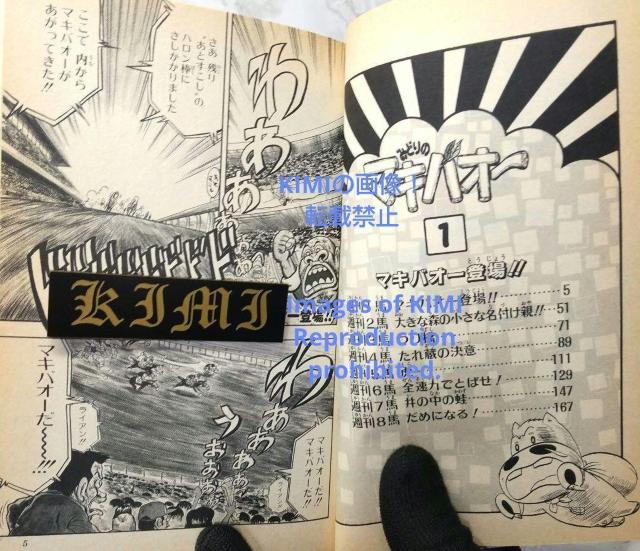 みどりの
マキバオー
1
マキバオー登場!!
登場!! 5
週刊2馬 大きな森の小さな名付け親!! 51
71
週刊4馬 たれ蔵の決意 89
111
週刊6馬 全速力でとばせ! 129
週刊7馬 井の中の蛙 147
週刊8馬 だめになる! 167
さあ 残り
“あとすこし”の
ハロン棒に
さしかかりました
ここで 内から
マキバオーが
あがってきた!!
わあ
あぁ
ドドドド
ー登場!!
わあぁ
うおぉぉ
マキバオーだ!!
マキバオーだ!!
ライアン!!
マキバオーだ〜〜!!!
5
KIMI
KIMIの画像!
転載禁止
Images of KIMI
Reproduction
prohibited.